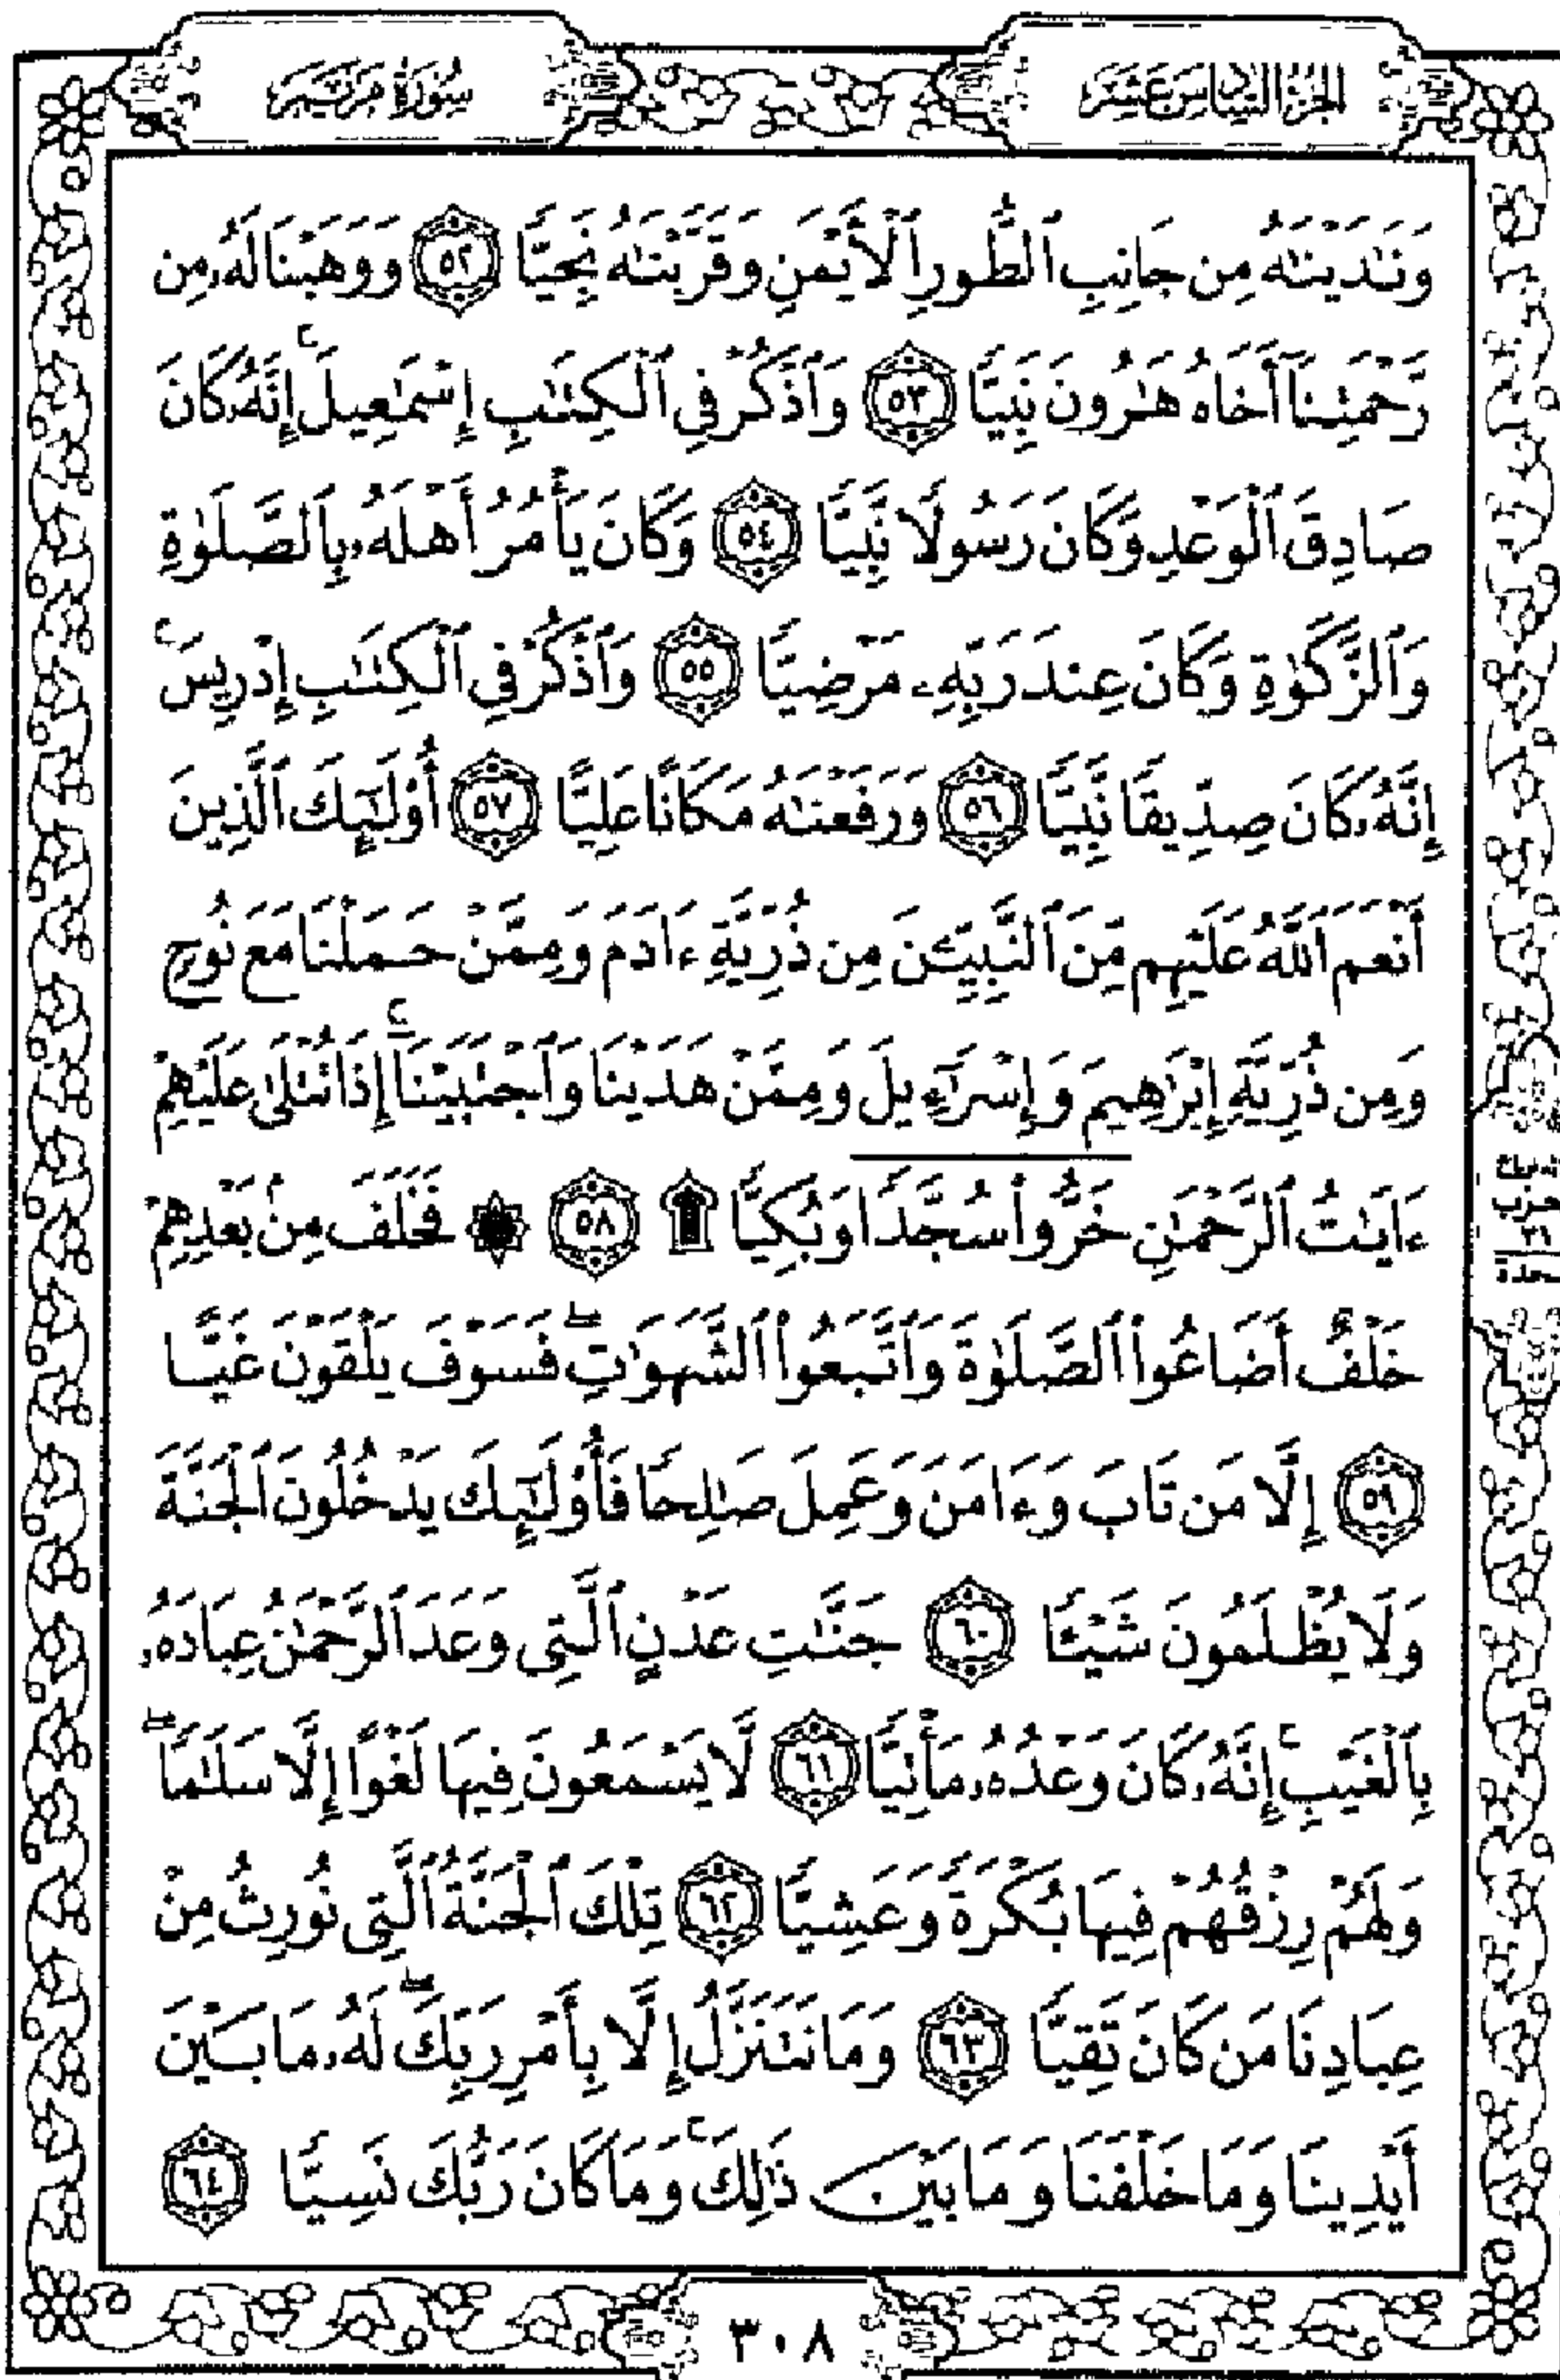 الجزء السادس عشر
سورة مريم
وَنَٰدَيْنَٰهُ مِن جَانِبِ ٱلطُّورِ ٱلْأَيْمَنِ وَقَرَّبْنَٰهُ نَجِيًّا ٥٢ وَوَهَبْنَا لَهُۥ مِن
رَّحْمَتِنَآ أَخَاهُ هَٰرُونَ نَبِيًّا ٥٣ وَٱذْكُرْ فِى ٱلْكِتَٰبِ إِسْمَٰعِيلَ ۚ إِنَّهُۥ كَانَ
صَادِقَ ٱلْوَعْدِ وَكَانَ رَسُولًا نَّبِيًّا ٥٤ وَكَانَ يَأْمُرُ أَهْلَهُۥ بِٱلصَّلَوٰةِ
وَٱلزَّكَوٰةِ وَكَانَ عِندَ رَبِّهِۦ مَرْضِيًّا ٥٥ وَٱذْكُرْ فِى ٱلْكِتَٰبِ إِدْرِيسَ ۚ
إِنَّهُۥ كَانَ صِدِّيقًا نَّبِيًّا ٥٦ وَرَفَعْنَٰهُ مَكَانًا عَلِيًّا ٥٧ أُو۟لَٰٓئِكَ ٱلَّذِينَ
أَنْعَمَ ٱللَّهُ عَلَيْهِم مِّنَ ٱلنَّبِيِّۦنَ مِن ذُرِّيَّةِ ءَادَمَ وَمِمَّنْ حَمَلْنَا مَعَ نُوحٍ
وَمِن ذُرِّيَّةِ إِبْرَٰهِيمَ وَإِسْرَٰٓءِيلَ وَمِمَّنْ هَدَيْنَا وَٱجْتَبَيْنَآ ۚ إِذَا تُتْلَىٰ عَلَيْهِمْ
ءَايَٰتُ ٱلرَّحْمَٰنِ خَرُّوا۟ سُجَّدًا وَبُكِيًّا ۩ ٥٨ ۞ فَخَلَفَ مِنۢ بَعْدِهِمْ
خَلْفٌ أَضَاعُوا۟ ٱلصَّلَوٰةَ وَٱتَّبَعُوا۟ ٱلشَّهَوَٰتِ ۖ فَسَوْفَ يَلْقَوْنَ غَيًّا
٥٩ إِلَّا مَن تَابَ وَءَامَنَ وَعَمِلَ صَٰلِحًا فَأُو۟لَٰٓئِكَ يَدْخُلُونَ ٱلْجَنَّةَ
وَلَا يُظْلَمُونَ شَيْـًٔا ٦٠ جَنَّٰتِ عَدْنٍ ٱلَّتِى وَعَدَ ٱلرَّحْمَٰنُ عِبَادَهُۥ
بِٱلْغَيْبِ ۚ إِنَّهُۥ كَانَ وَعْدُهُۥ مَأْتِيًّا ٦١ لَّا يَسْمَعُونَ فِيهَا لَغْوًا إِلَّا سَلَٰمًا ۖ
وَلَهُمْ رِزْقُهُمْ فِيهَا بُكْرَةً وَعَشِيًّا ٦٢ تِلْكَ ٱلْجَنَّةُ ٱلَّتِى نُورِثُ مِنْ
عِبَادِنَا مَن كَانَ تَقِيًّا ٦٣ وَمَا نَتَنَزَّلُ إِلَّا بِأَمْرِ رَبِّكَ ۖ لَهُۥ مَا بَيْنَ
أَيْدِينَا وَمَا خَلْفَنَا وَمَا بَيْنَ ذَٰلِكَ ۚ وَمَا كَانَ رَبُّكَ نَسِيًّا ٦٤
سجدة
٣٠٨